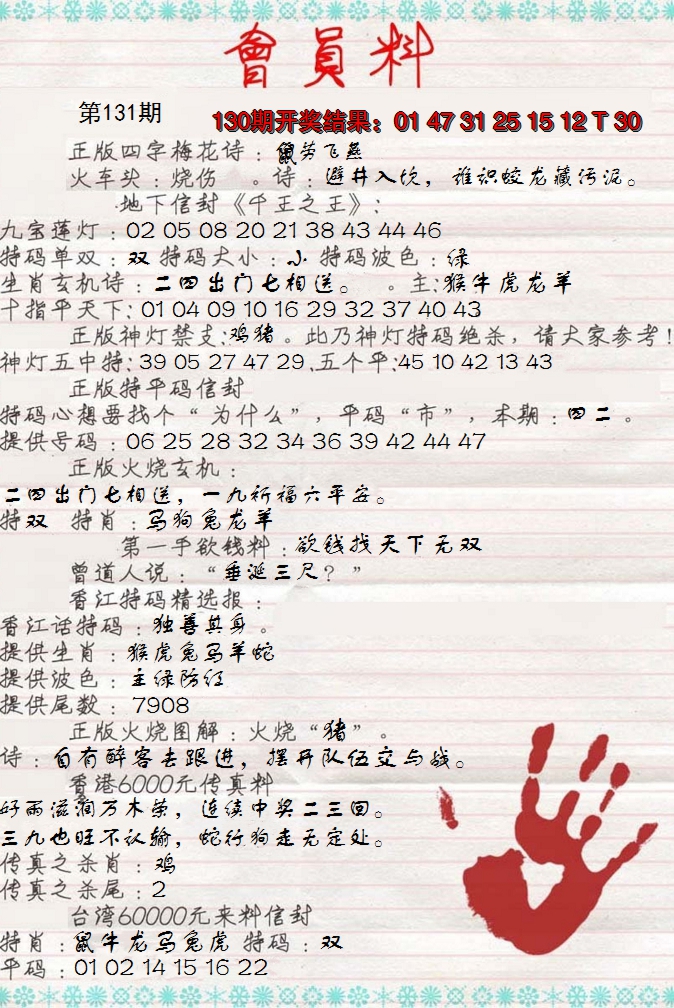 會員料
第131期
130期开奖结果：01 47 31 25 15 12 T 30
正版四字梅花诗：鼠劳飞燕
火车头：烧伤 。诗：避井入坎，谁识蛟龙藏污泥。
地下信封《千王之王》：
九宝莲灯：02 05 08 20 21 38 43 44 46
特码单双：双 特码大小：小 特码波色：绿
生肖玄机诗：二四出门七相送。 。主：猴牛虎龙羊
十指平天下：01 04 09 10 16 29 32 37 40 43
正版神灯禁支：鸡猪。此乃神灯特码绝杀，请大家参考！
神灯五中特：39 05 27 47 29.五个平：45 10 42 13 43
正版特平码信封
特码心想要找个“为什么”，平码“市”，本期：四二。
提供号码：06 25 28 32 34 36 39 42 44 47
正版火烧玄机：
二四出门七相送，一九祈福六平安。
特双 特肖：马狗兔龙羊
第一手欲钱料：欲钱找天下无双
曾道人说：“垂涎三尺？”
香江特码精选报：
香江话特码：独善其身。
提供生肖：猴虎兔马羊蛇
提供波色：主绿防红
提供尾数：7908
正版火烧图解：火烧“猪”。
诗：自有醉客去跟进，摆开队伍交与战。
香港6000元传真料
好雨滋润万木荣，连续中奖二三回。
三九也旺不认输，蛇行狗走无定处。
传真之杀肖：鸡
传真之杀尾：2
台湾60000元来料信封
特肖：鼠牛龙马兔虎 特码：双
平码：01 02 14 15 16 22